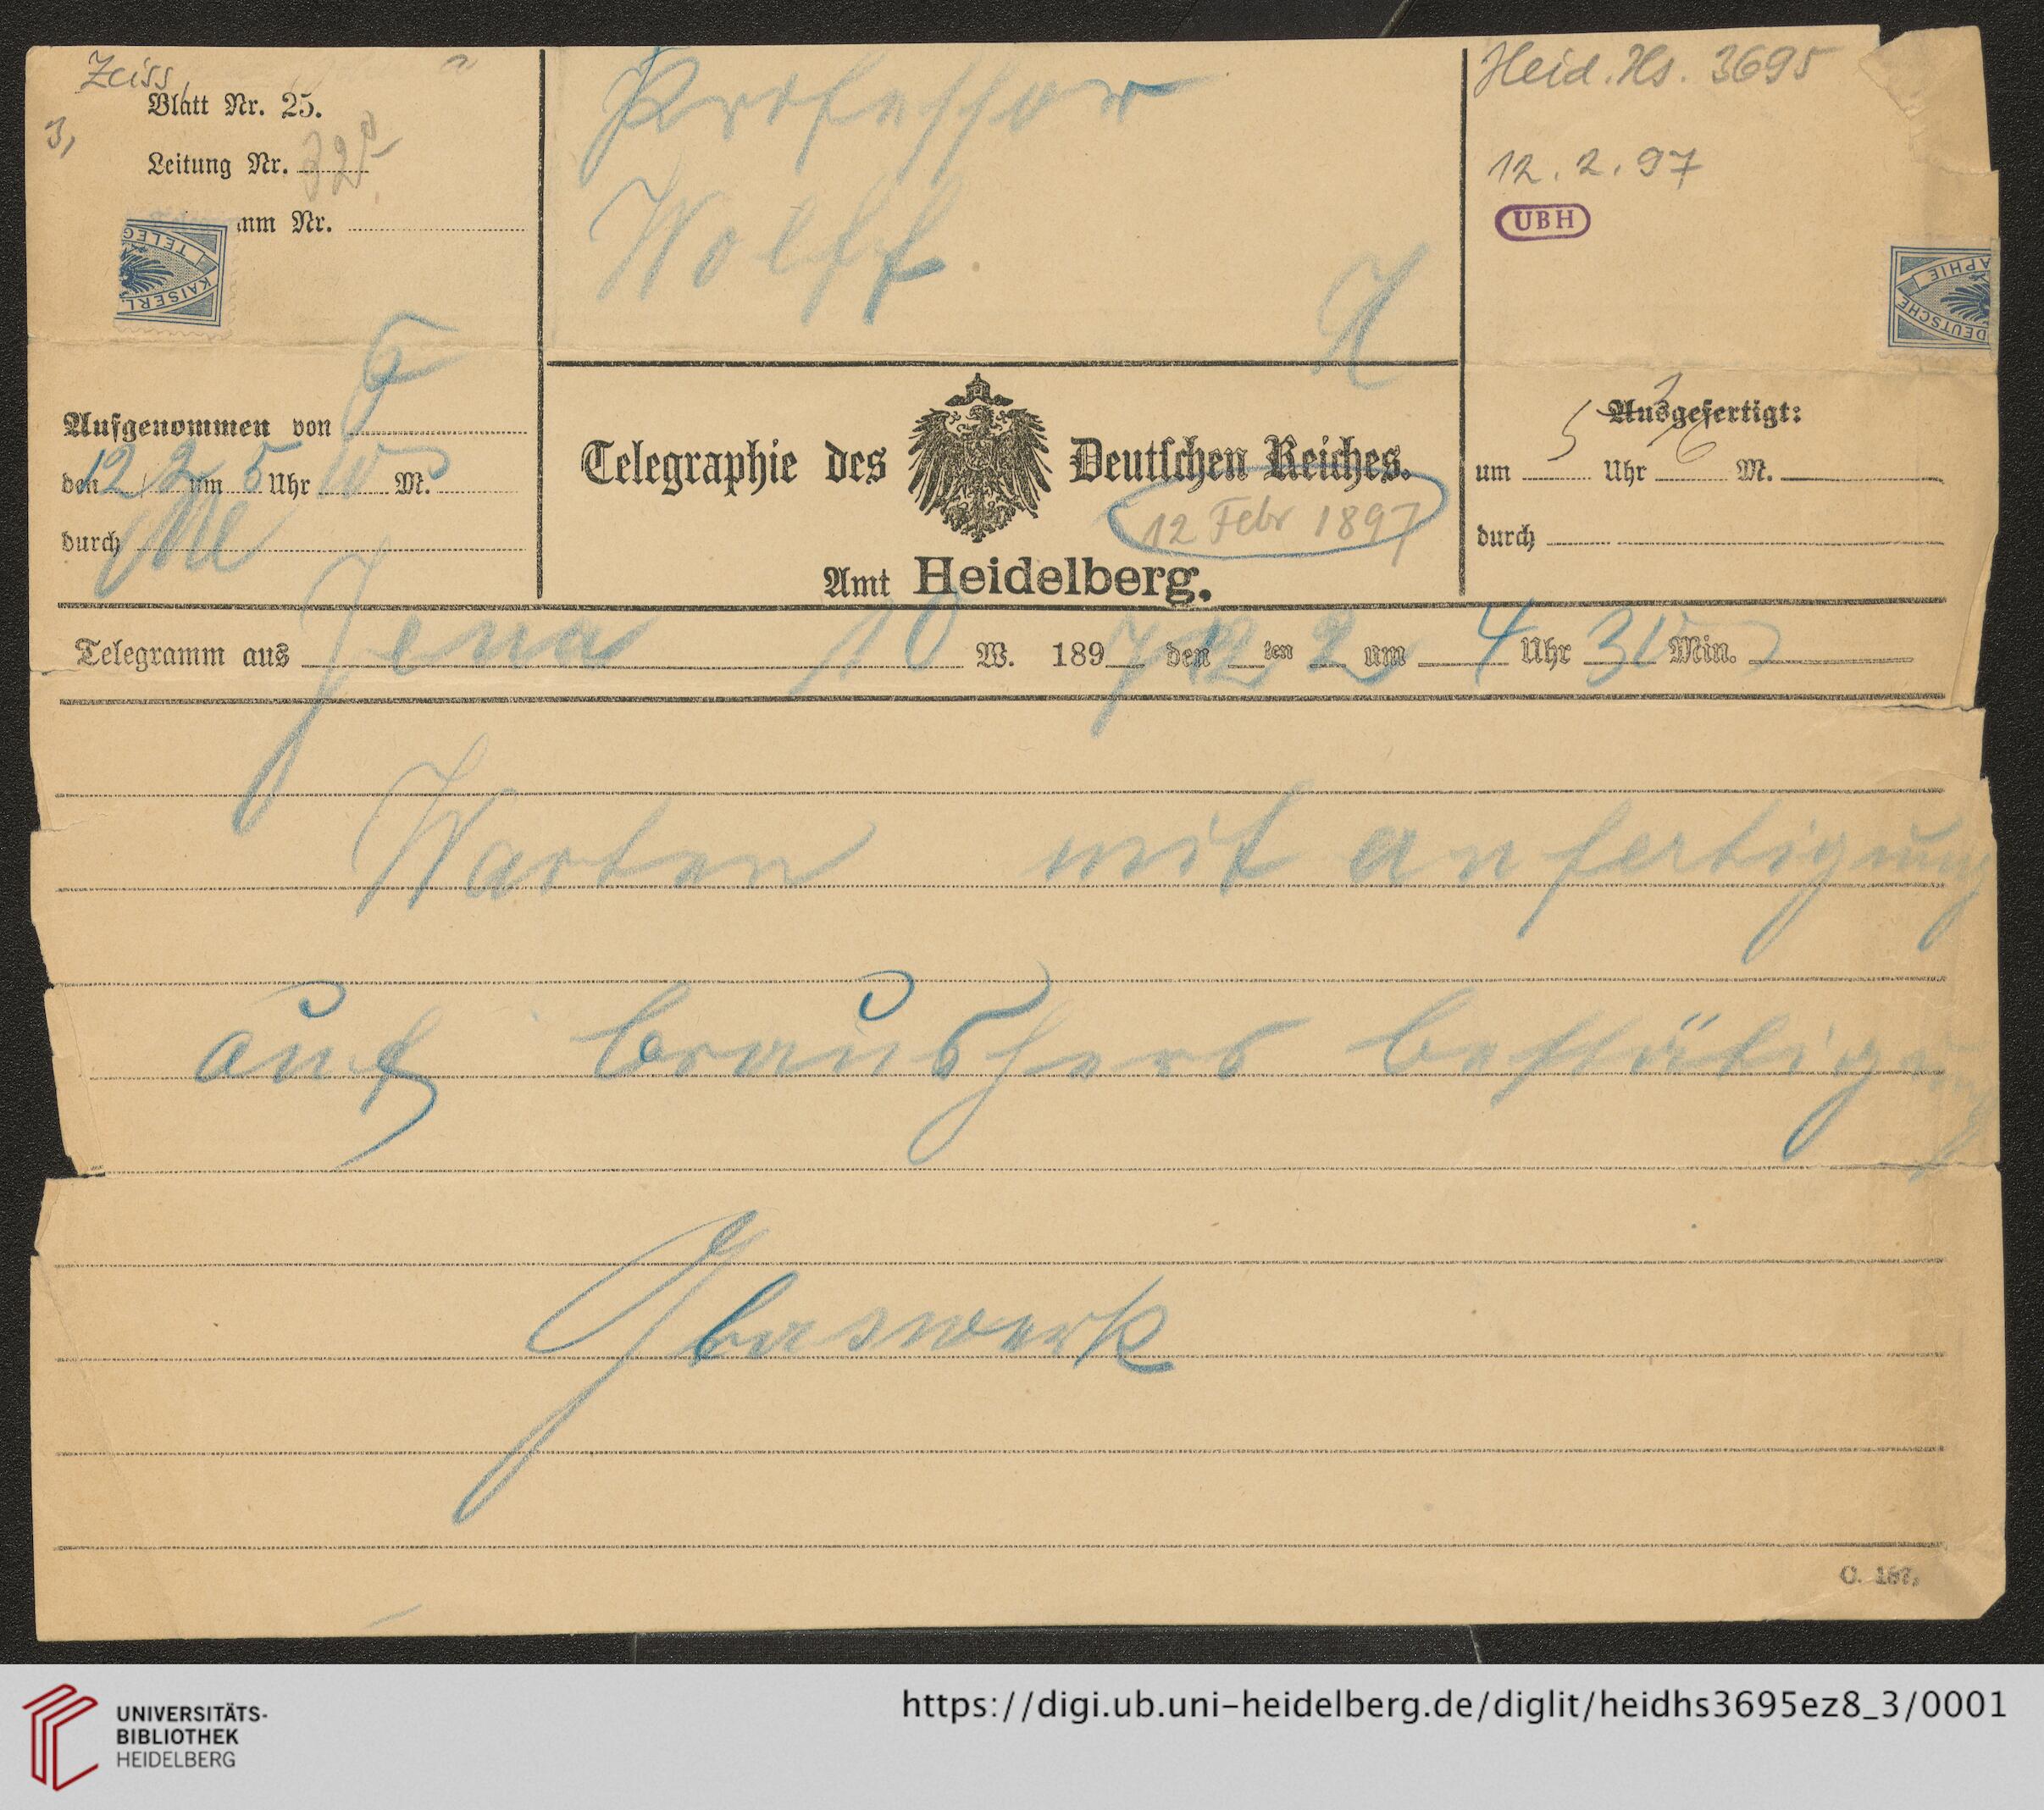 Zeiss,
3,
Blatt Nr. 25.
Leitung Nr.
mm Nr.
KAISERL. TELEG
Aufgenommen von
den 12 2 um 5 Uhr 10 M.
durch
Professor
Wolff
H
Telegraphie des Deutschen Reiches.
12 Febr 1897
Amt Heidelberg.
Heid. Hs. 3695
12. 2. 97
UBH
DEUTSCHE APHIE
Ausgefertigt:
um 5 Uhr M.
durch
Telegramm aus Jena 10 W. 1897 den 12 ten 2 um 4 Uhr Min.
Warten mit anfertigung
auf braushers bestätigung
Glaswerk
C. 187.
UNIVERSITÄTS-
BIBLIOTHEK
HEIDELBERG
https://digi.ub.uni-heidelberg.de/diglit/heidhs3695ez8_3/0001